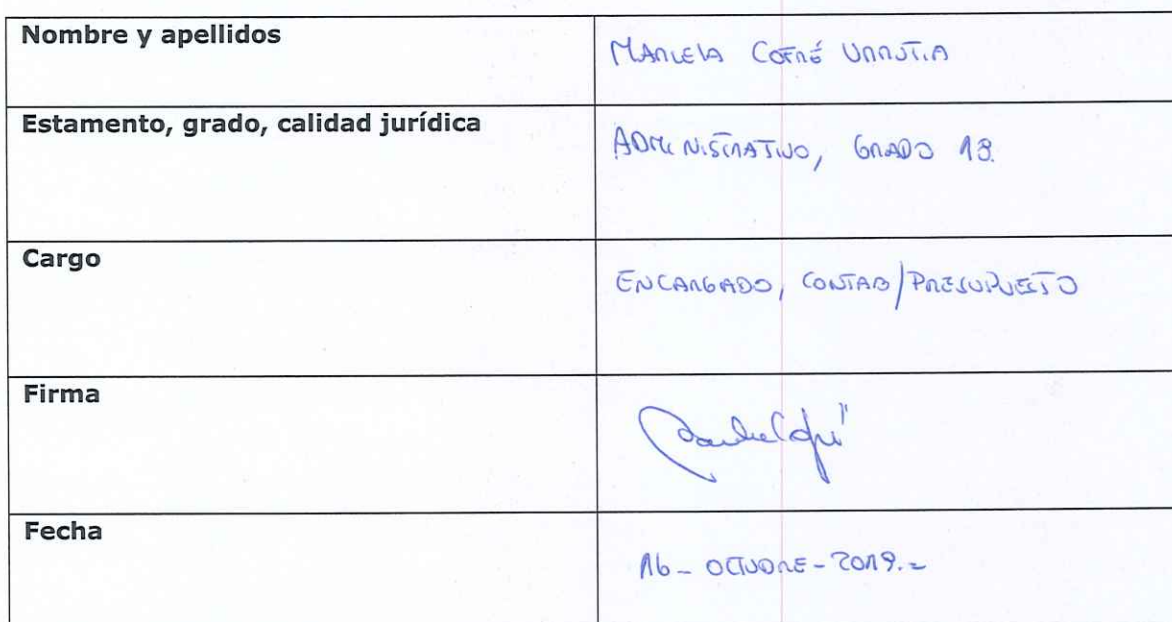 Nombre y apellidos
MARCELA COFRÉ URRUTIA
Estamento, grado, calidad jurídica
ADMINISTRATIVO, GRADO 18.
Cargo
ENCARGADO, CONTAB/PRESUPUESTO
Firma
Fecha
16-OCTUBRE-2019.=